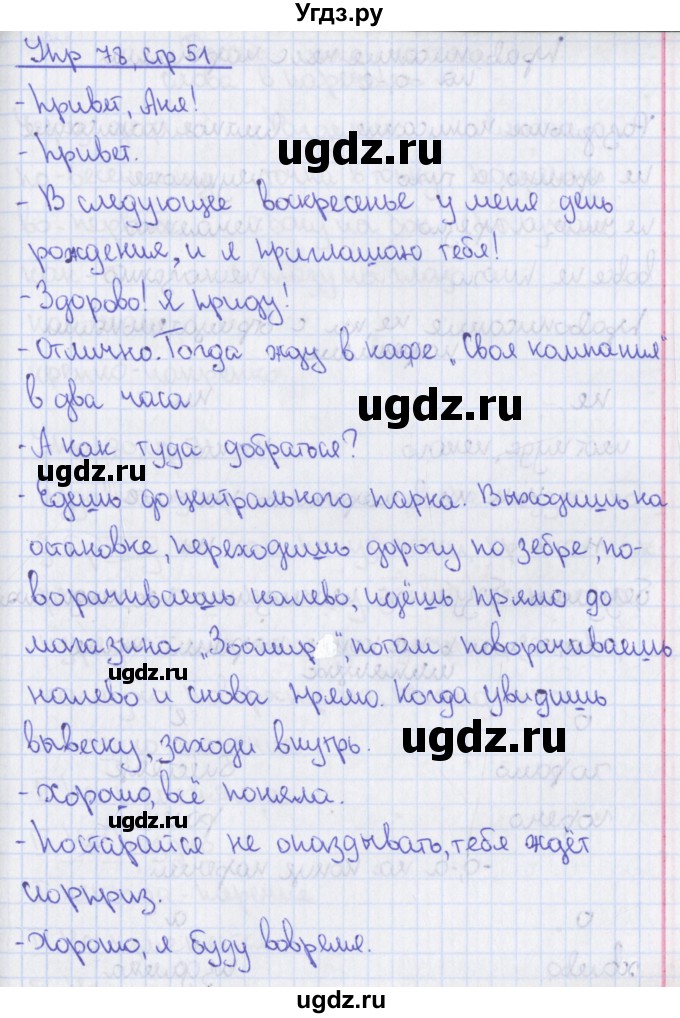 Угдз.ру
Упр 78, стр 51
- Привет, Аня!
- Привет.
ugdz.ru
- В следующее воскресенье у меня день
рождения, и я приглашаю тебя!
- Здорово! Я приду!
- Отлично. Тогда жду в кафе „Своя компания"
в два часа
ugdz.ru
- А как туда добраться?
ugdz.ru
- Едешь до центрального парка. Выходишь на
остановке, переходишь дорогу по зебре, по-
ugdz.ru
ворачиваешь налево, идёшь прямо до
магазина „Зоомир", потом поворачиваешь
ugdz.ru
налево и снова прямо. Когда увидишь
вывеску, заходи внутрь.
ugdz.ru
- Хорошо, всё поняла.
ugdz.ru
- Постарайся не опаздывать, тебя ждёт
сюрприз.
- Хорошо, я буду вовремя.
ugdz.ru